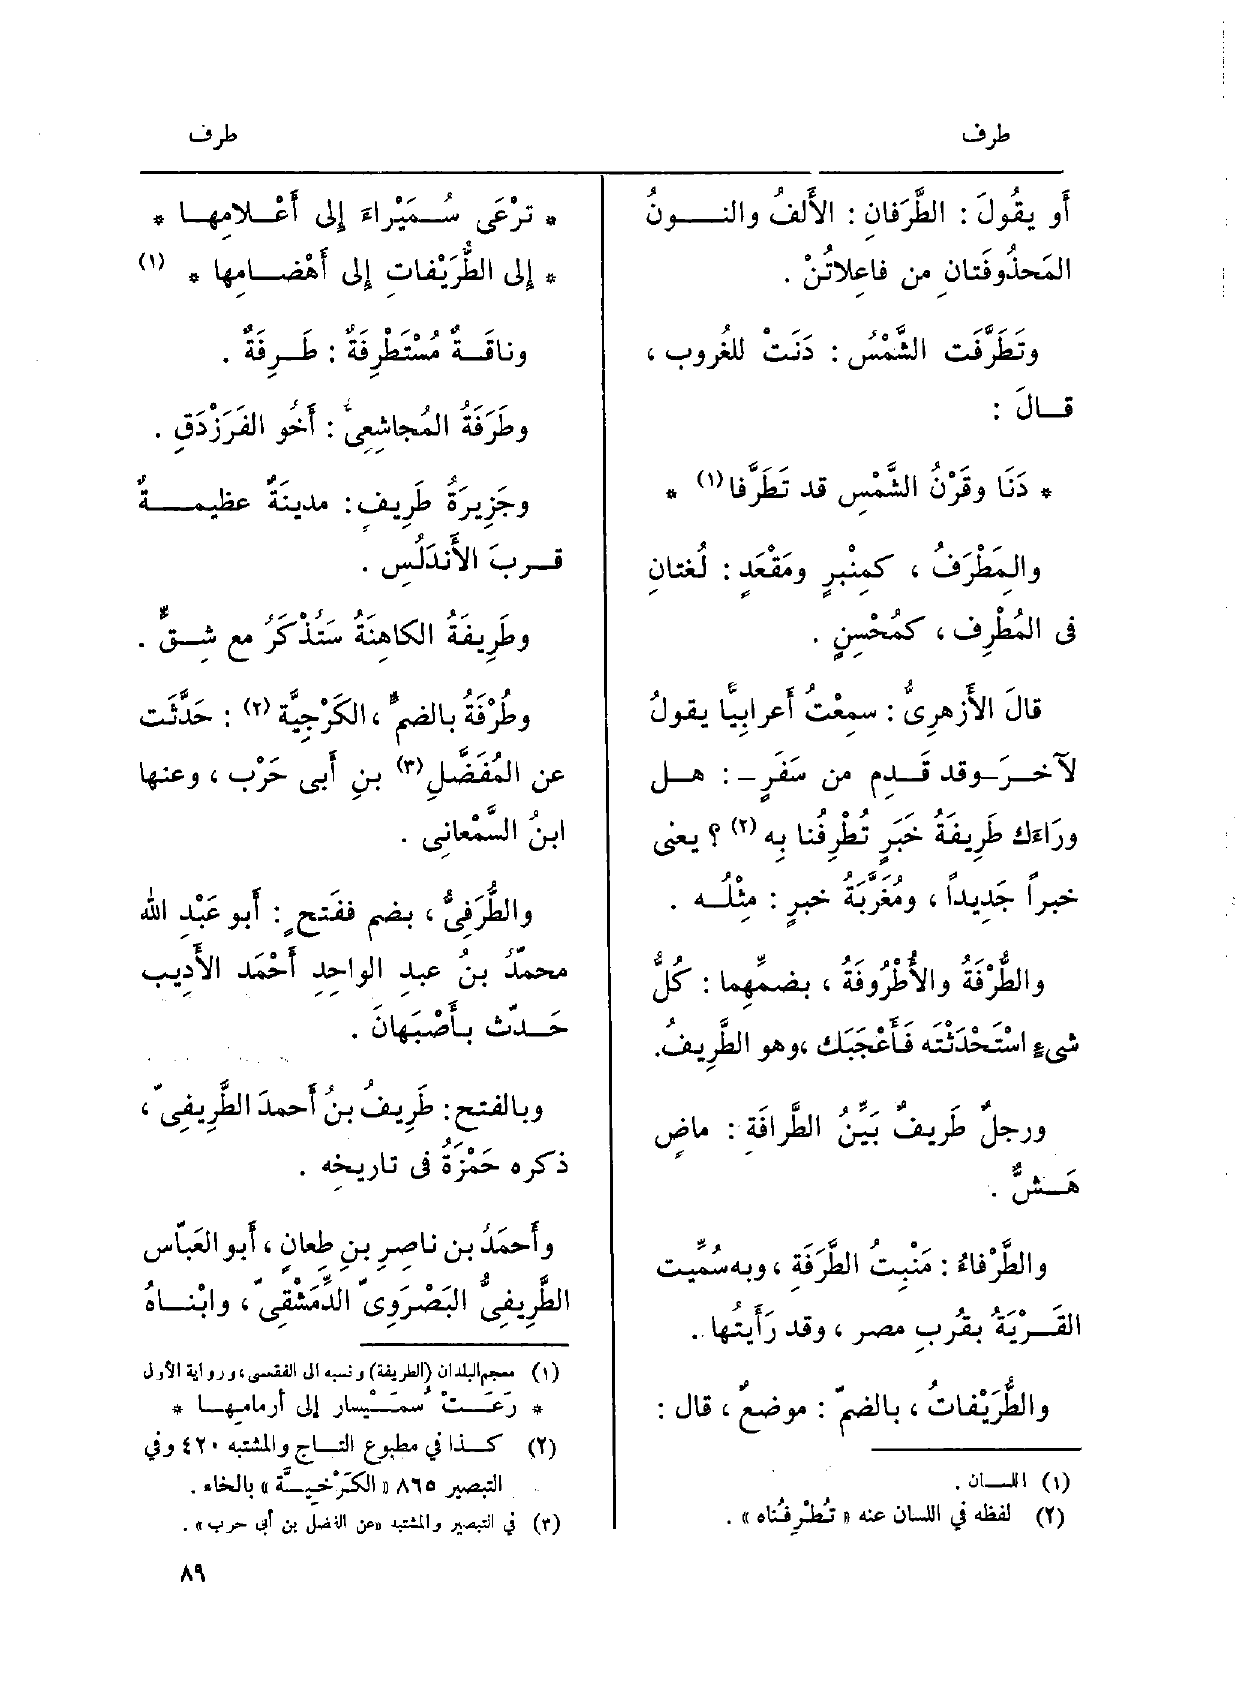 طرف
طرف
أو يقُولَ : الطَّرَفانِ : الأَلفُ والنــونُ
المَحذُوفَتانِ من فاعلاتُنْ .
وتَطَرَّفَت الشَّمْسُ : دَنَتْ للغُروب ،
قــالَ :
* دَنَا وقَرْنُ الشَّمْسِ قد تَطَرَّفا (١) *
والمِطْرَفُ ، كمِنْبرٍ ومَقْعَدٍ : لُغتانِ
فى المُطْرِف ، كمُحْسِنٍ .
قالَ الأَزهرىُّ : سمِعْتُ أَعرابِيًّا يقولُ
لآخــرَ–وقد قَــدِم من سَفَرٍ – : هــل
ورَاءَك طَرِيفَةُ خَبَرٍ تُطْرِفُنا بِه (٢) ؟ يعنى
خبراً جَدِيداً ، ومُغَرَّبَةُ خبرٍ : مِثْلُــه .
والطُّرْفَةُ والأُطْرُوفَةُ ، بضمِّهما : كُلُّ
شىءٍ اسْتَحْدَثْتَه فَأَعْجَبَك ،وهو الطَّرِيفُ.
ورجلٌ طَرِيفٌ بَيِّنُ الطَّرافَةِ : ماضٍ
هَــشٌّ .
والطَّرْفاءُ : مَنْبِتُ الطَّرَفَةِ ، وبه سُمِّيت
القَــرْيَةُ بقُربِ مصر ، وقد رَأَيتُها .
والطُّرَيْفاتُ ، بالضمّ : موضعٌ ، قال :
(١) اللســان .
(٢) لفظه في اللسان عنه « تُطْرِفُناه » .
* تَرْعَى سُــمَيْراءَ إلى أَعْــلامِهــا *
* إلى الطُّرَيْفاتِ إلى أَهْضــامِها * (١)
وناقَــةٌ مُسْتَطْرِفَةٌ : طَــرِفَةٌ .
وطَرَفَةُ المُجاشِعِىُّ : أَخُو الفَرَزْدَقِ .
وجَزِيرَةُ طَرِيفٍ : مدينَةٌ عظيمــةٌ
قــربَ الأَنْدَلُسِ .
وطَرِيفَةُ الكاهِنَةُ سَتُذْكَرُ مع شِــقٍّ .
وطُرْفَةُ بالضمِّ ، الكَرْجِيَّة (٢) : حَدَّثَت
عن المُفَضَّلِ (٣) بنِ أَبى حَرْب ، وعنها
ابنُ السَّمْعانِى .
والطُّرَفِىُّ ، بضم ففَتحٍ : أَبو عَبْدِ الله
محمدُ بنُ عبدِ الواحِدِ أَحْمَد الأَدِيب
حَــدّث بأَصْبَهانَ .
وبالفتح: طَرِيفُ بنُ أَحمدَ الطَّرِيفِىّ ،
ذكره حَمْزَةُ فى تاريخِه .
وأَحمَدُ بن ناصِرِ بنِ طِعانٍ ، أَبو العَبّاس
الطَّرِيفِىُّ البَصْرَوِىّ الدِّمَشْقِىّ ، وابْنــاهُ
(١) معجم البلدان (الطريفة) ونسبه الى الفقسى ، ورواية الأول
* رَعَــتْ سُمَــيْسار إلى أرمامِهــا *
(٢) كــذا في مطبوع التــاج والمشتبه ٤٢٠ وفي
التبصير ٨٦٥ « الكَرْخيــة » بالخاء .
(٣) في التبصير والمشتبه «عن الفضل بن أبى حرب» .
٨٩